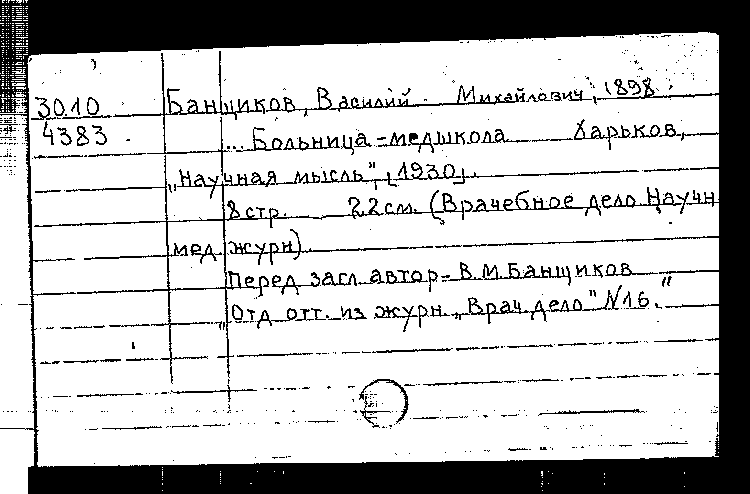 30.10 Банщиков, Василий Михайлович, 1898.
4383. ... Больница-медшкола Харьков,
„Научная мысль", [1930].
8 стр. 22 см. (Врачебное дело Научн
мед. журн).
Перед загл. автор - В.М. Банщиков
„Отд отт. из журн. „Врач. дело" N 16."